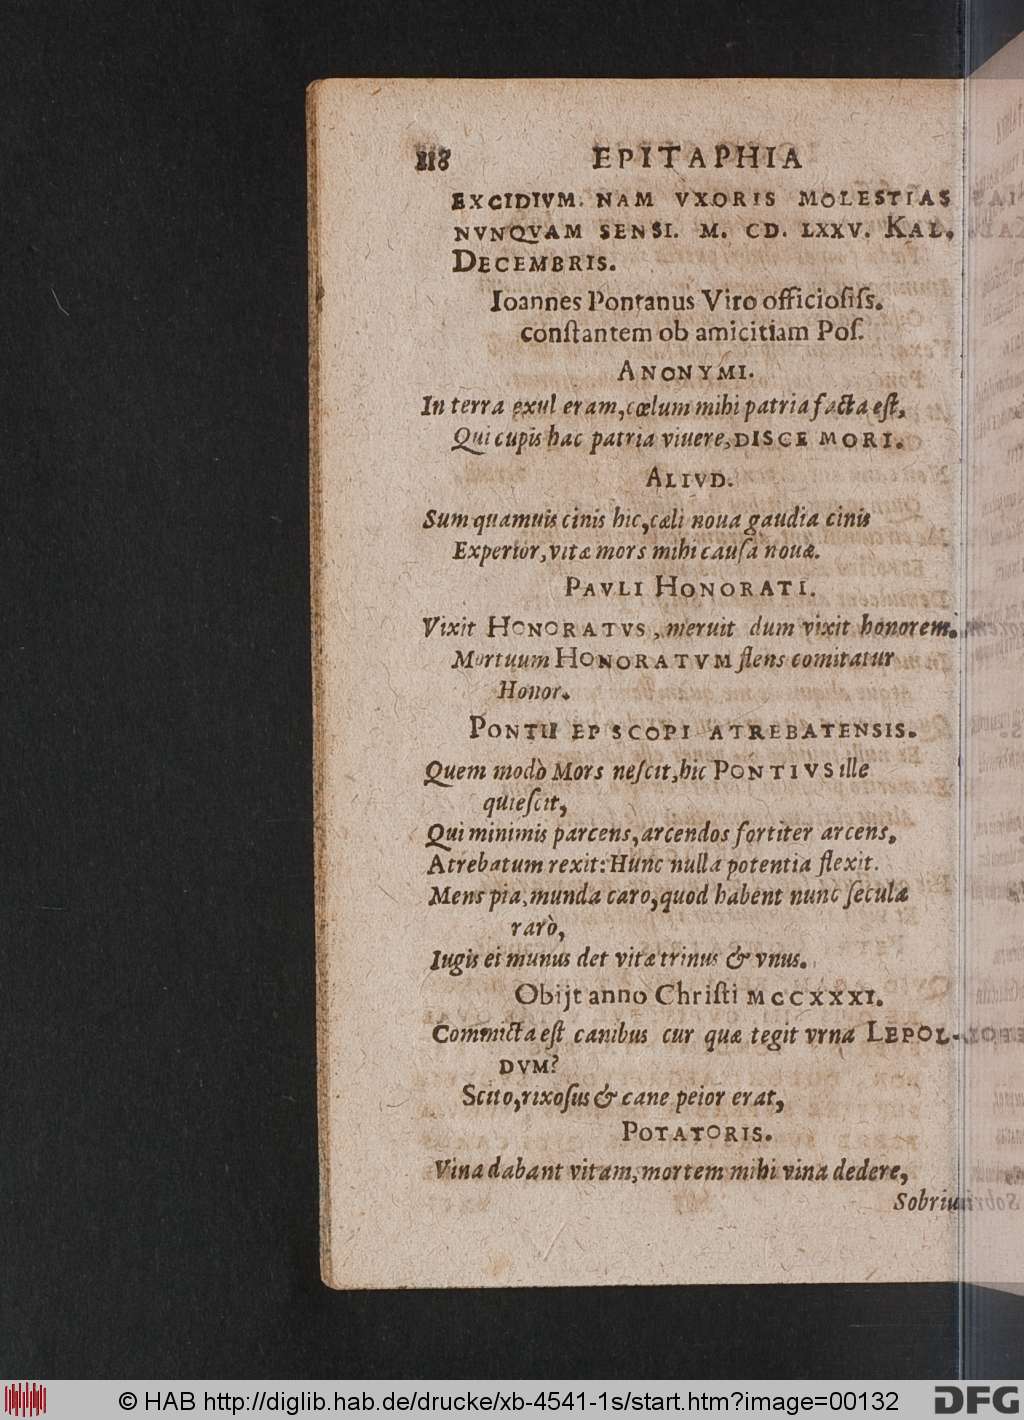 118 EPITAPHIA
EXCIDIVM. NAM VXORIS MOLESTIAS
NVNQVAM SENSI. M. CD. LXXV. KAL.
DECEMBRIS.
Ioannes Pontanus Viro officiosiſs.
conſtantem ob amicitiam Poſ.
ANONYMI.
In terra exul eram, cœlum mihi patria facta eſt,
Qui cupis hac patria viuere, DISCE MORI.
ALIVD.
Sum quamuis cinis hic, cœli noua gaudia cinis
Experior, vitæ mors mihi cauſa nouæ.
PAVLI HONORATI.
Vixit HONORATVS, meruit dum vixit honorem,
Mortuum HONORATVM flens comitatur
Honor.
PONTII EPISCOPI ATREBATENSIS.
Quem modò Mors neſcit, hic PONTIVS ille
quieſcit,
Qui minimis parcens, arcendos fortiter arcens,
Atrebatum rexit: Hunc nulla potentia flexit.
Mens pia, munda caro, quod habent nunc ſecula
rarò,
Iugis ei munus det vitæ trinus & vnus.
Obijt anno Chriſti MCCXXXI.
Commicta eſt canibus cur quæ tegit vrna LEPOL-
DVM?
Scito, rixoſus & cane peior erat,
POTATORIS.
Vina dabant vitam, mortem mihi vina dedere,
© HAB http://diglib.hab.de/drucke/xb-4541-1s/start.htm?image=00132
DFG